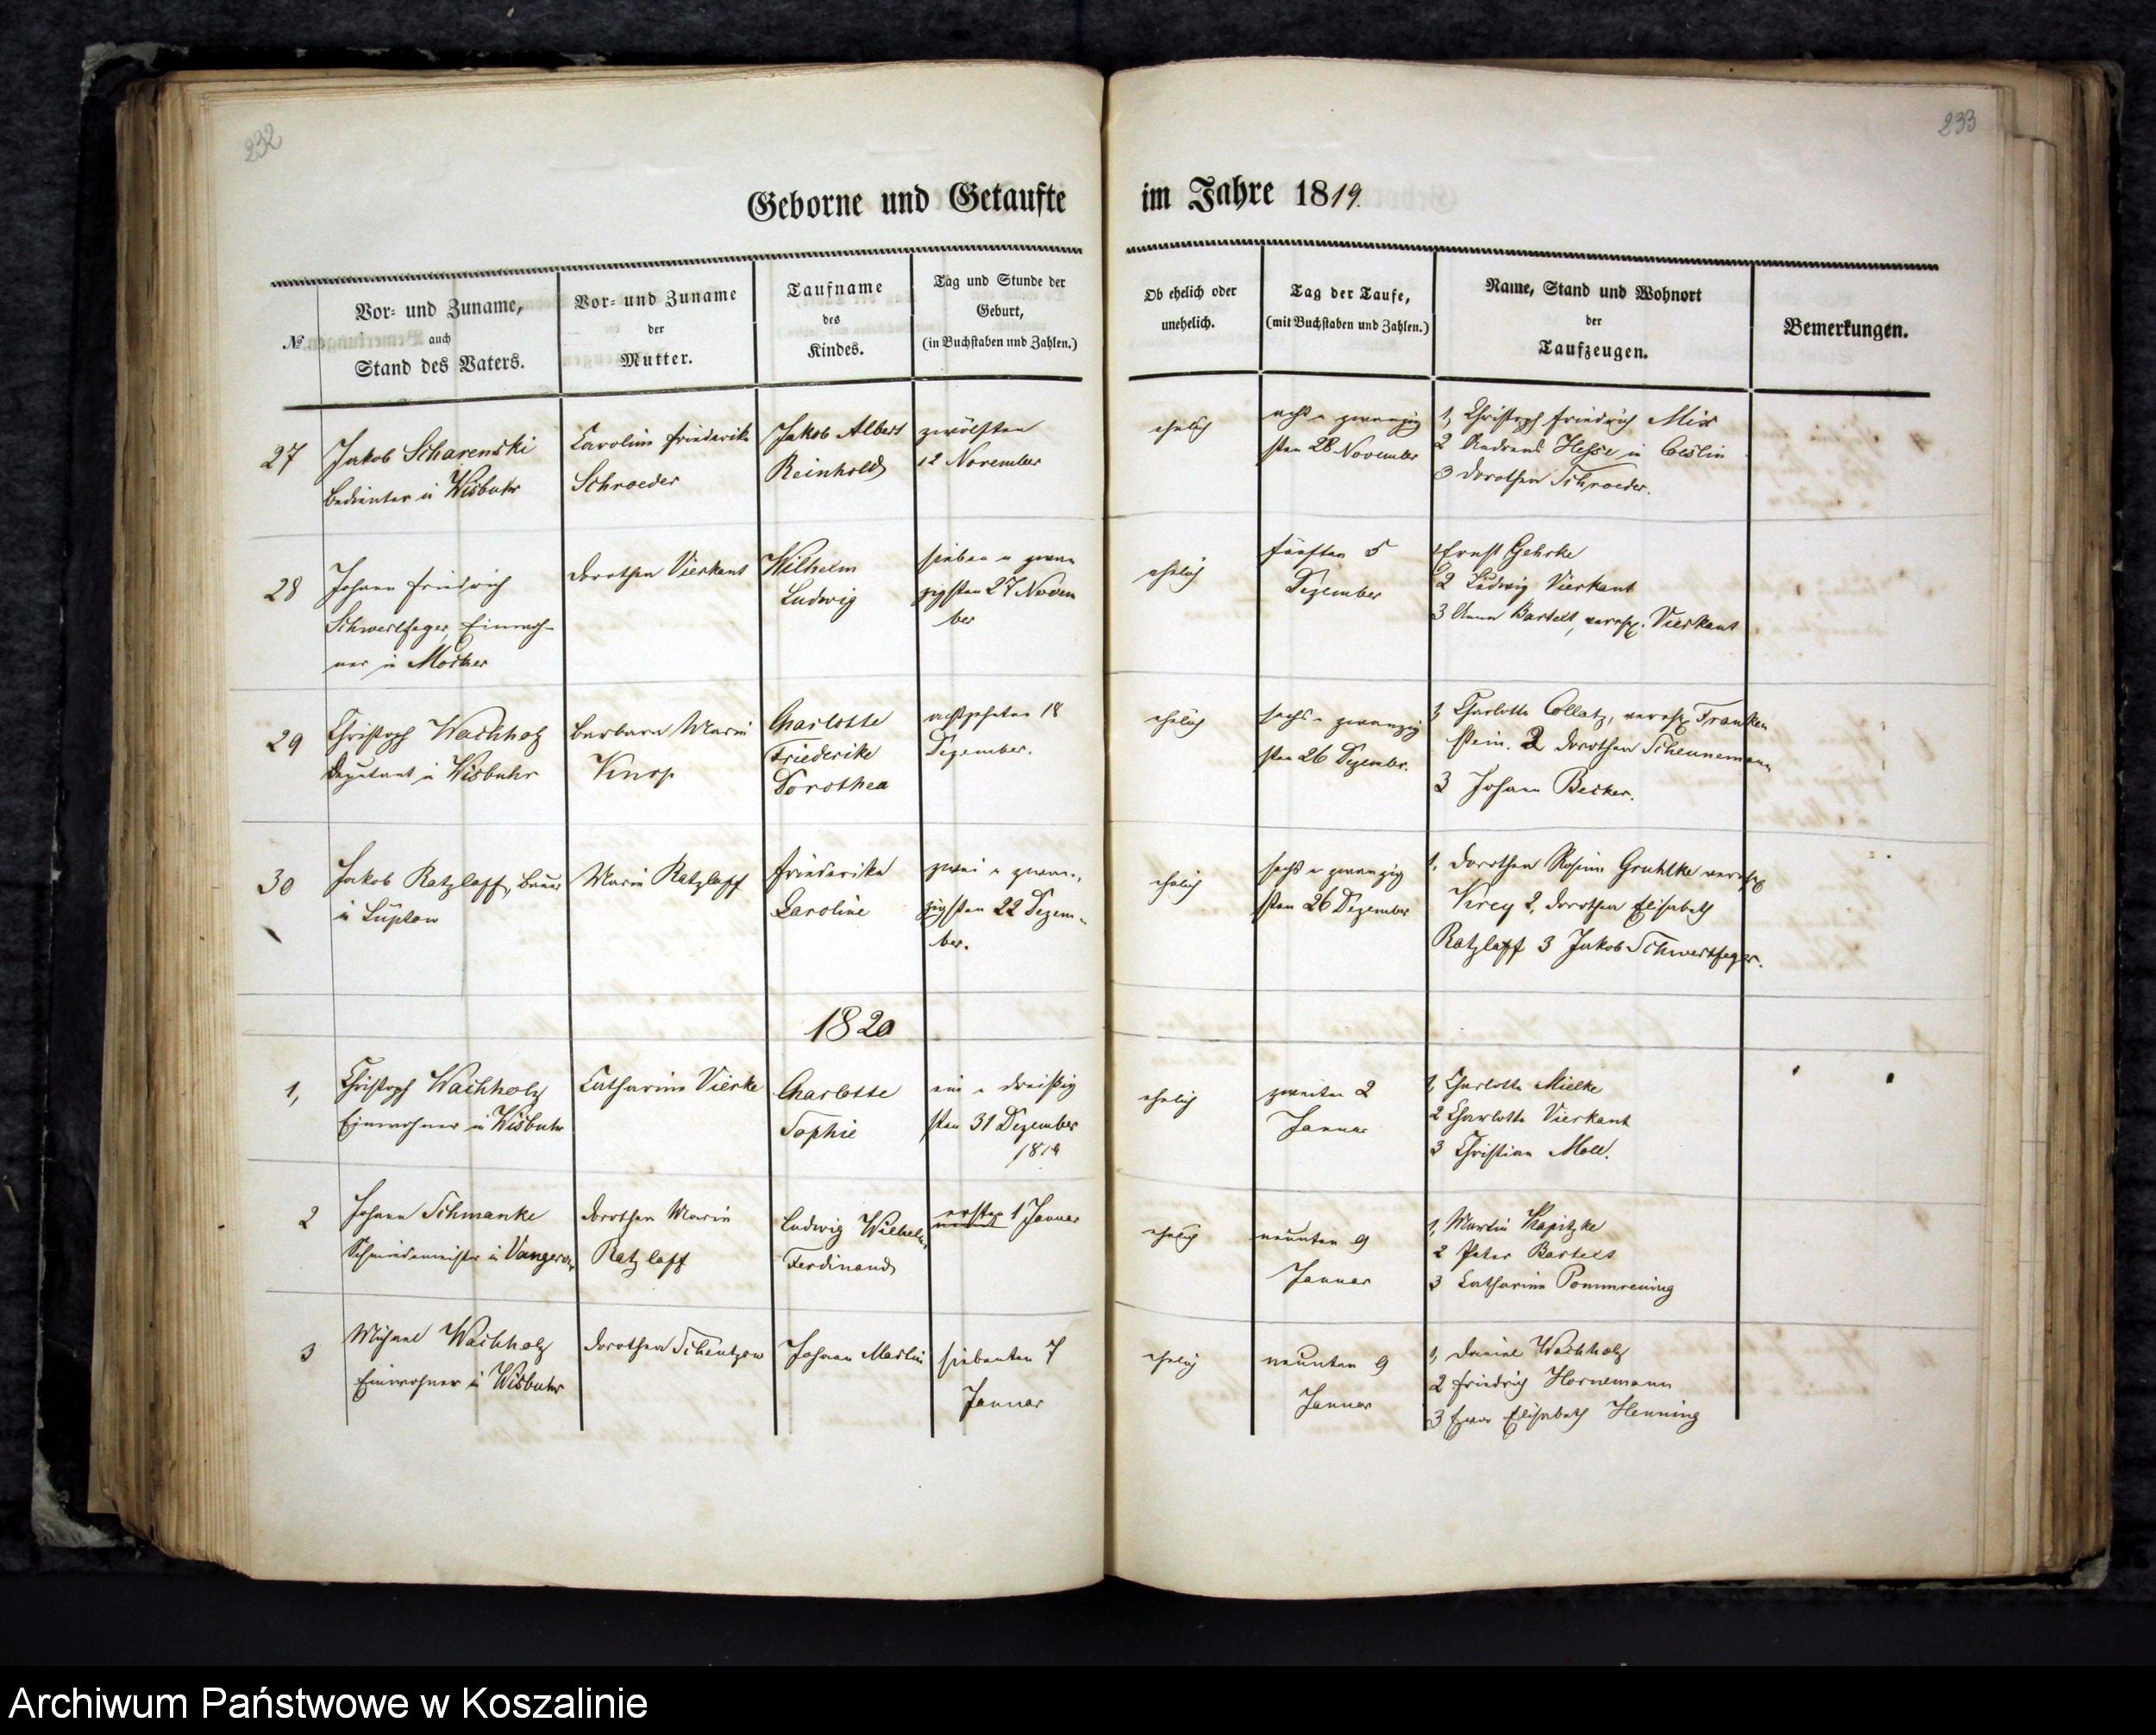 232
233
Geborne und Getaufte im Jahre 1819.
№
Vor- und Zuname,
auch
Stand des Vaters.
Vor- und Zuname
der
Mutter.
Taufname
des
Kindes.
Tag und Stunde der
Geburt,
(in Buchstaben und Zahlen.)
Ob ehelich oder
unehelich.
Tag der Taufe,
(mit Buchstaben und Zahlen.)
Name, Stand und Wohnort
der
Taufzeugen.
Bemerkungen.
27
Jakob Scharenski
Bedienter in Wisbuhr
Caroline Friederike
Schroeder
Jakob Albert
Reinhold
zwölften
12 November
ehelich
acht u zwanzig
sten 28 November
1, Christoph Friedrich Mix
2 Andreas Hesse in Coeslin
3 Dorothea Schroeder.
28
Johann Friedrich
Schwertfeger, Einwoh-
ner in Mocker
Dorothea Vierkant
Wilhelm
Ludwig
sieben u zwan
zigsten 27 Novem
ber
ehelich
fünften 5
Dezember
1 Ernst Gehrke
2 Ludwig Vierkant
3 Anna Bartelt, verehx. Vierkant
29
Christoph Wachholz
Deputant in Wisbuhr
Barbara Marie
Knop
Charlotte
Friederike
Dorothea
achtzehnten 18
Dezember.
ehelich
sechs u zwanzig
sten 26 Dezember.
1, Charlotte Collatz, verehx Franken
stein. 2 Dorothea Scheunemann
3 Johann Becker.
30
Jakob Ratzlaff, Bauer
in Lüptow
Marie Ratzlaff
Friederike
Caroline
zwei u zwan-
zigsten 22 Dezem-
ber.
ehelich
sechs u zwanzig
sten 26 Dezember
1, Dorothea Rosine Gruhlke verehx
Krey 2, Dorothea Elisabeth
Ratzlaff 3 Jakob Schwertfeger.
1820
1,
Christoph Wachholz
Einwohner in Wisbuhr
Catharine Vierke
Charlotte
Sophie
ein u dreißig
sten 31 Dezember
1819
ehelich
zweiten 2
Januar
1, Charlotte Mielke
2 Charlotte Vierkant
3 Christian Moll.
2
Johann Schmanke
Schmiedemeister in Vangerow
Dorothea Marie
Ratzlaff
Ludwig Wilhelm
Ferdinand
ersten 1 Januar
ehelich
neunten 9
Januar
1, Martin Kapitzke
2 Peter Bartelt
3 Catharine Pommrening
3
Michael Wachholz
Einwohner in Wisbuhr
Dorothea Scheutzow
Johann Martin
siebenten 7
Januar
ehelich
neunten 9
Januar
1, Daniel Wachholz
2 Friedrich Hornemann
3 Elisabeth Henning
Archiwum Państwowe w Koszalinie